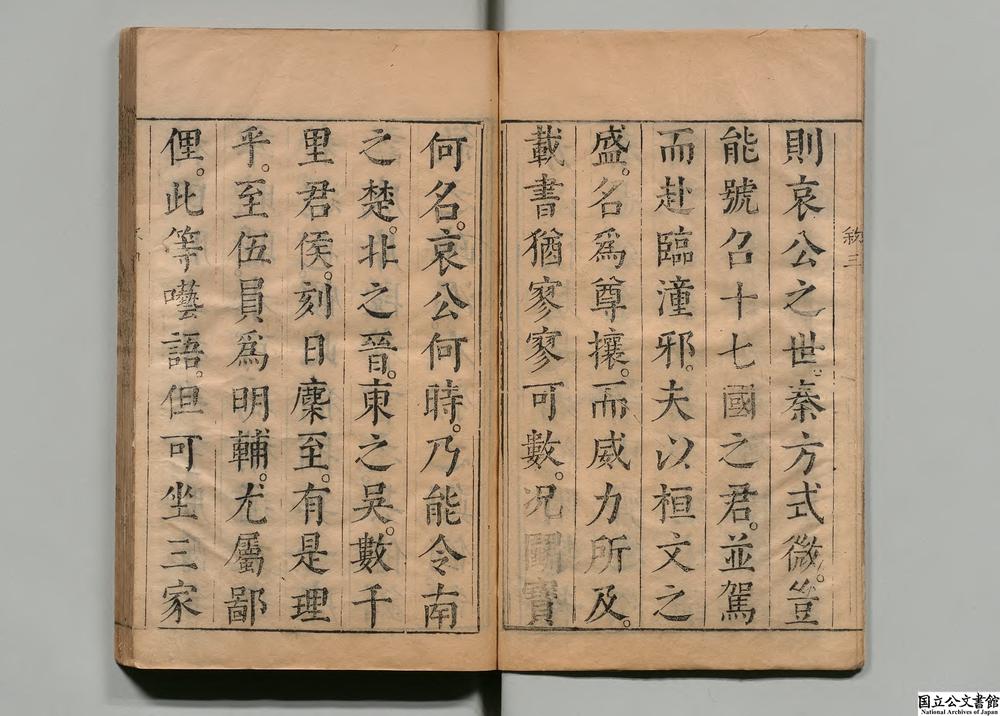 則哀公之世。秦方式微。豈
能號召十七國之君。並駕
而赴臨潼邪。夫以桓文之
盛。名爲尊攘。而威力所及。
載書猶寥寥可數。況鬭寶
敘三
何名。哀公何時。乃能令南
之楚。北之晉。東之吳。數千
里君侯。刻日麇至。有是理
乎。至伍員爲明輔。尤屬鄙
俚。此等囈語。但可坐三家
国立公文書館
National Archives of Japan